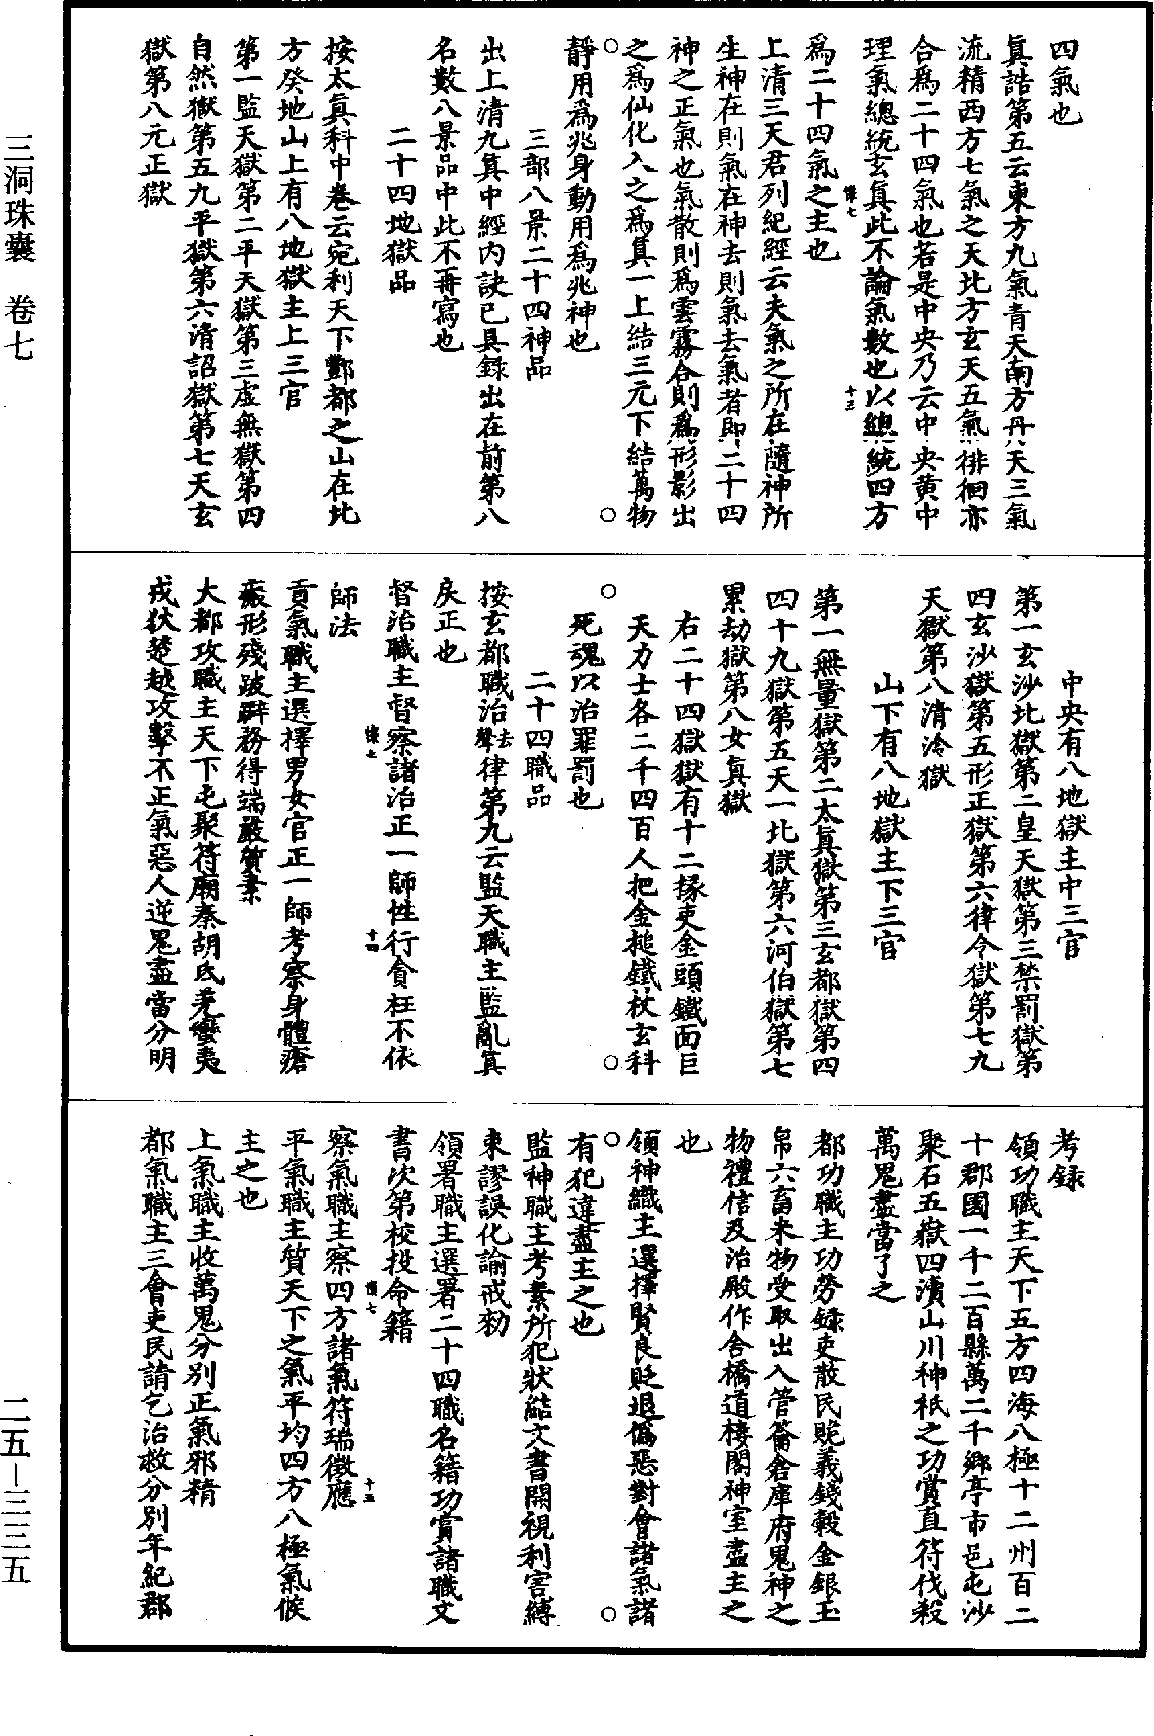 四氣也
真誥第五云東方九氣青天南方丹天三氣
流精西方七氣之天北方玄天五氣徘徊亦
合爲二十四氣也若是中央乃云中央黄中
理氣總統玄真此不論氣數也以總統四方
爲二十四氣之主也
上清三天君列紀經云夫氣之所在隨神所
生神在則氣在神去則氣去氣者即二十四
神之正氣也氣散則爲雲霧合則爲形影出
之爲仙化入之爲真一上結三元下結萬物
靜用爲兆身動用爲兆神也
三部八景二十四神品
出上清九真中經内訣已具録出在前第八
名數八景品中此不再寫也
二十四地獄品
按太真科中卷云宛利天下酆都之山在北
方癸地山上有八地獄主上三官
第一監天獄第二平天獄第三虚無獄第四
自然獄第五九平獄第六清詔獄第七天玄
獄第八元正獄
中央有八地獄主中三官
第一玄沙北獄第二皇天獄第三禁罰獄第
四玄沙獄第五形正獄第六律令獄第七九
天獄第八清泠獄
山下有八地獄主下三官
第一無量獄第二太真獄第三玄都獄第四
四十九獄第五天一北獄第六河伯獄第七
累劫獄第八女真獄
右二十四獄獄有十二掾吏金頭鐵面巨
天力士各二千四百人把金槌鐵杖玄科
死魂以治罪罰也
二十四職品
按玄都職治去聲律第九云監天職主監亂真
戾正也
督治職主督察諸治正一師性行貪枉不依
師法
貢氣職主選擇男女官正一師考察身體瘡
癥形殘跛躄務得端嚴質素
大都攻職主天下屯聚符廟秦胡氐羌蠻夷
戎狄楚越攻擊不正氣惡人逆鬼盡當分明
考録
領功職主天下五方四海八極十二州百二
十郡國一千二百縣萬二千鄉亭市邑屯沙
聚石五嶽四瀆山川神祇之功賞直符伐殺
萬鬼盡當了之
都功職主功勞録吏散民賧義錢穀金銀玉
帛六畜米物受取出入管籥倉庫府鬼神之
物禮信及治殿作舍橋道樓閣神室盡主之
也
領神職主選擇賢良貶退僞惡對會諸氣諸
有犯違盡主之也
監神職主考素所犯狀結文書開視利害縛
束謬誤化諭戒勑
領署職主選署二十四職名籍功賞諸職文
書次第校投命籍
察氣職主察四方諸氣符瑞徵應
平氣職主質天下之氣平均四方八極氣候
主之也
上氣職主收萬鬼分别正氣邪精
都氣職主三會吏民請乞治救分别年紀郡
三洞珠囊 卷七
二五－三三五